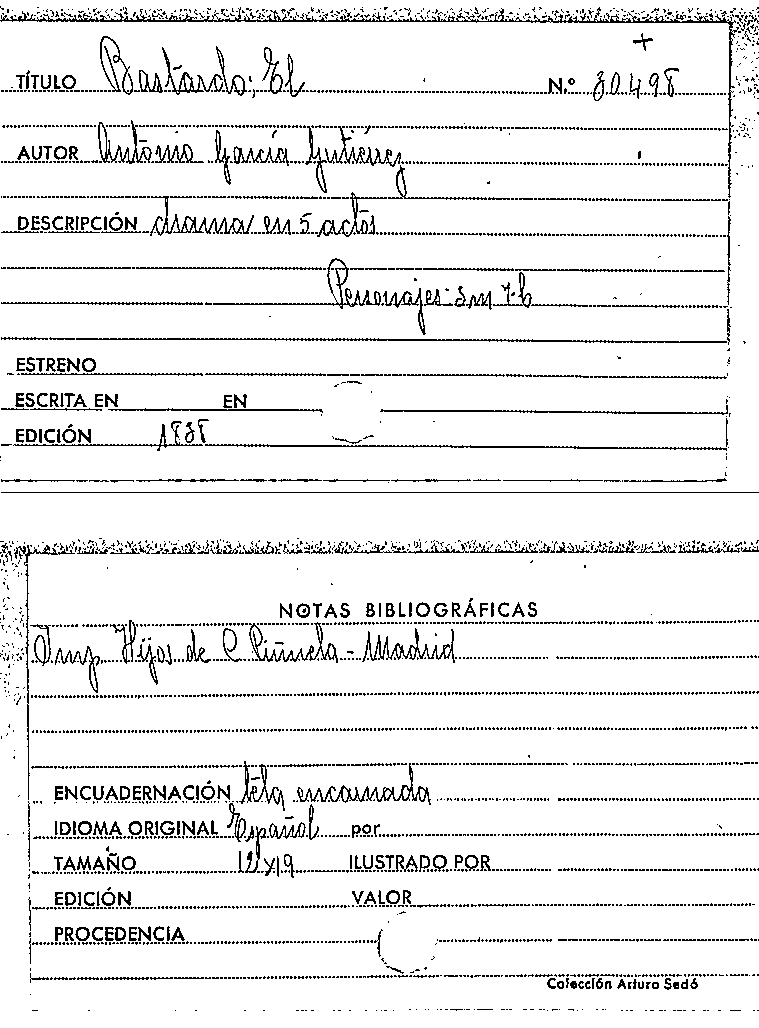 +
TÍTULO Bastardo; El N.º 30498
AUTOR Antonio García Gutiérrez
DESCRIPCIÓN drama en 5 actos
Personajes: 5m 7-h
ESTRENO
ESCRITA EN EN
EDICIÓN 1838
NOTAS BIBLIOGRÁFICAS
Imp Hijos de C Piñuela - Madrid
ENCUADERNACIÓN tela encarnada
IDIOMA ORIGINAL Español por
TAMAÑO 12x19 ILUSTRADO POR
EDICIÓN VALOR
PROCEDENCIA
Colección Arturo Sedó